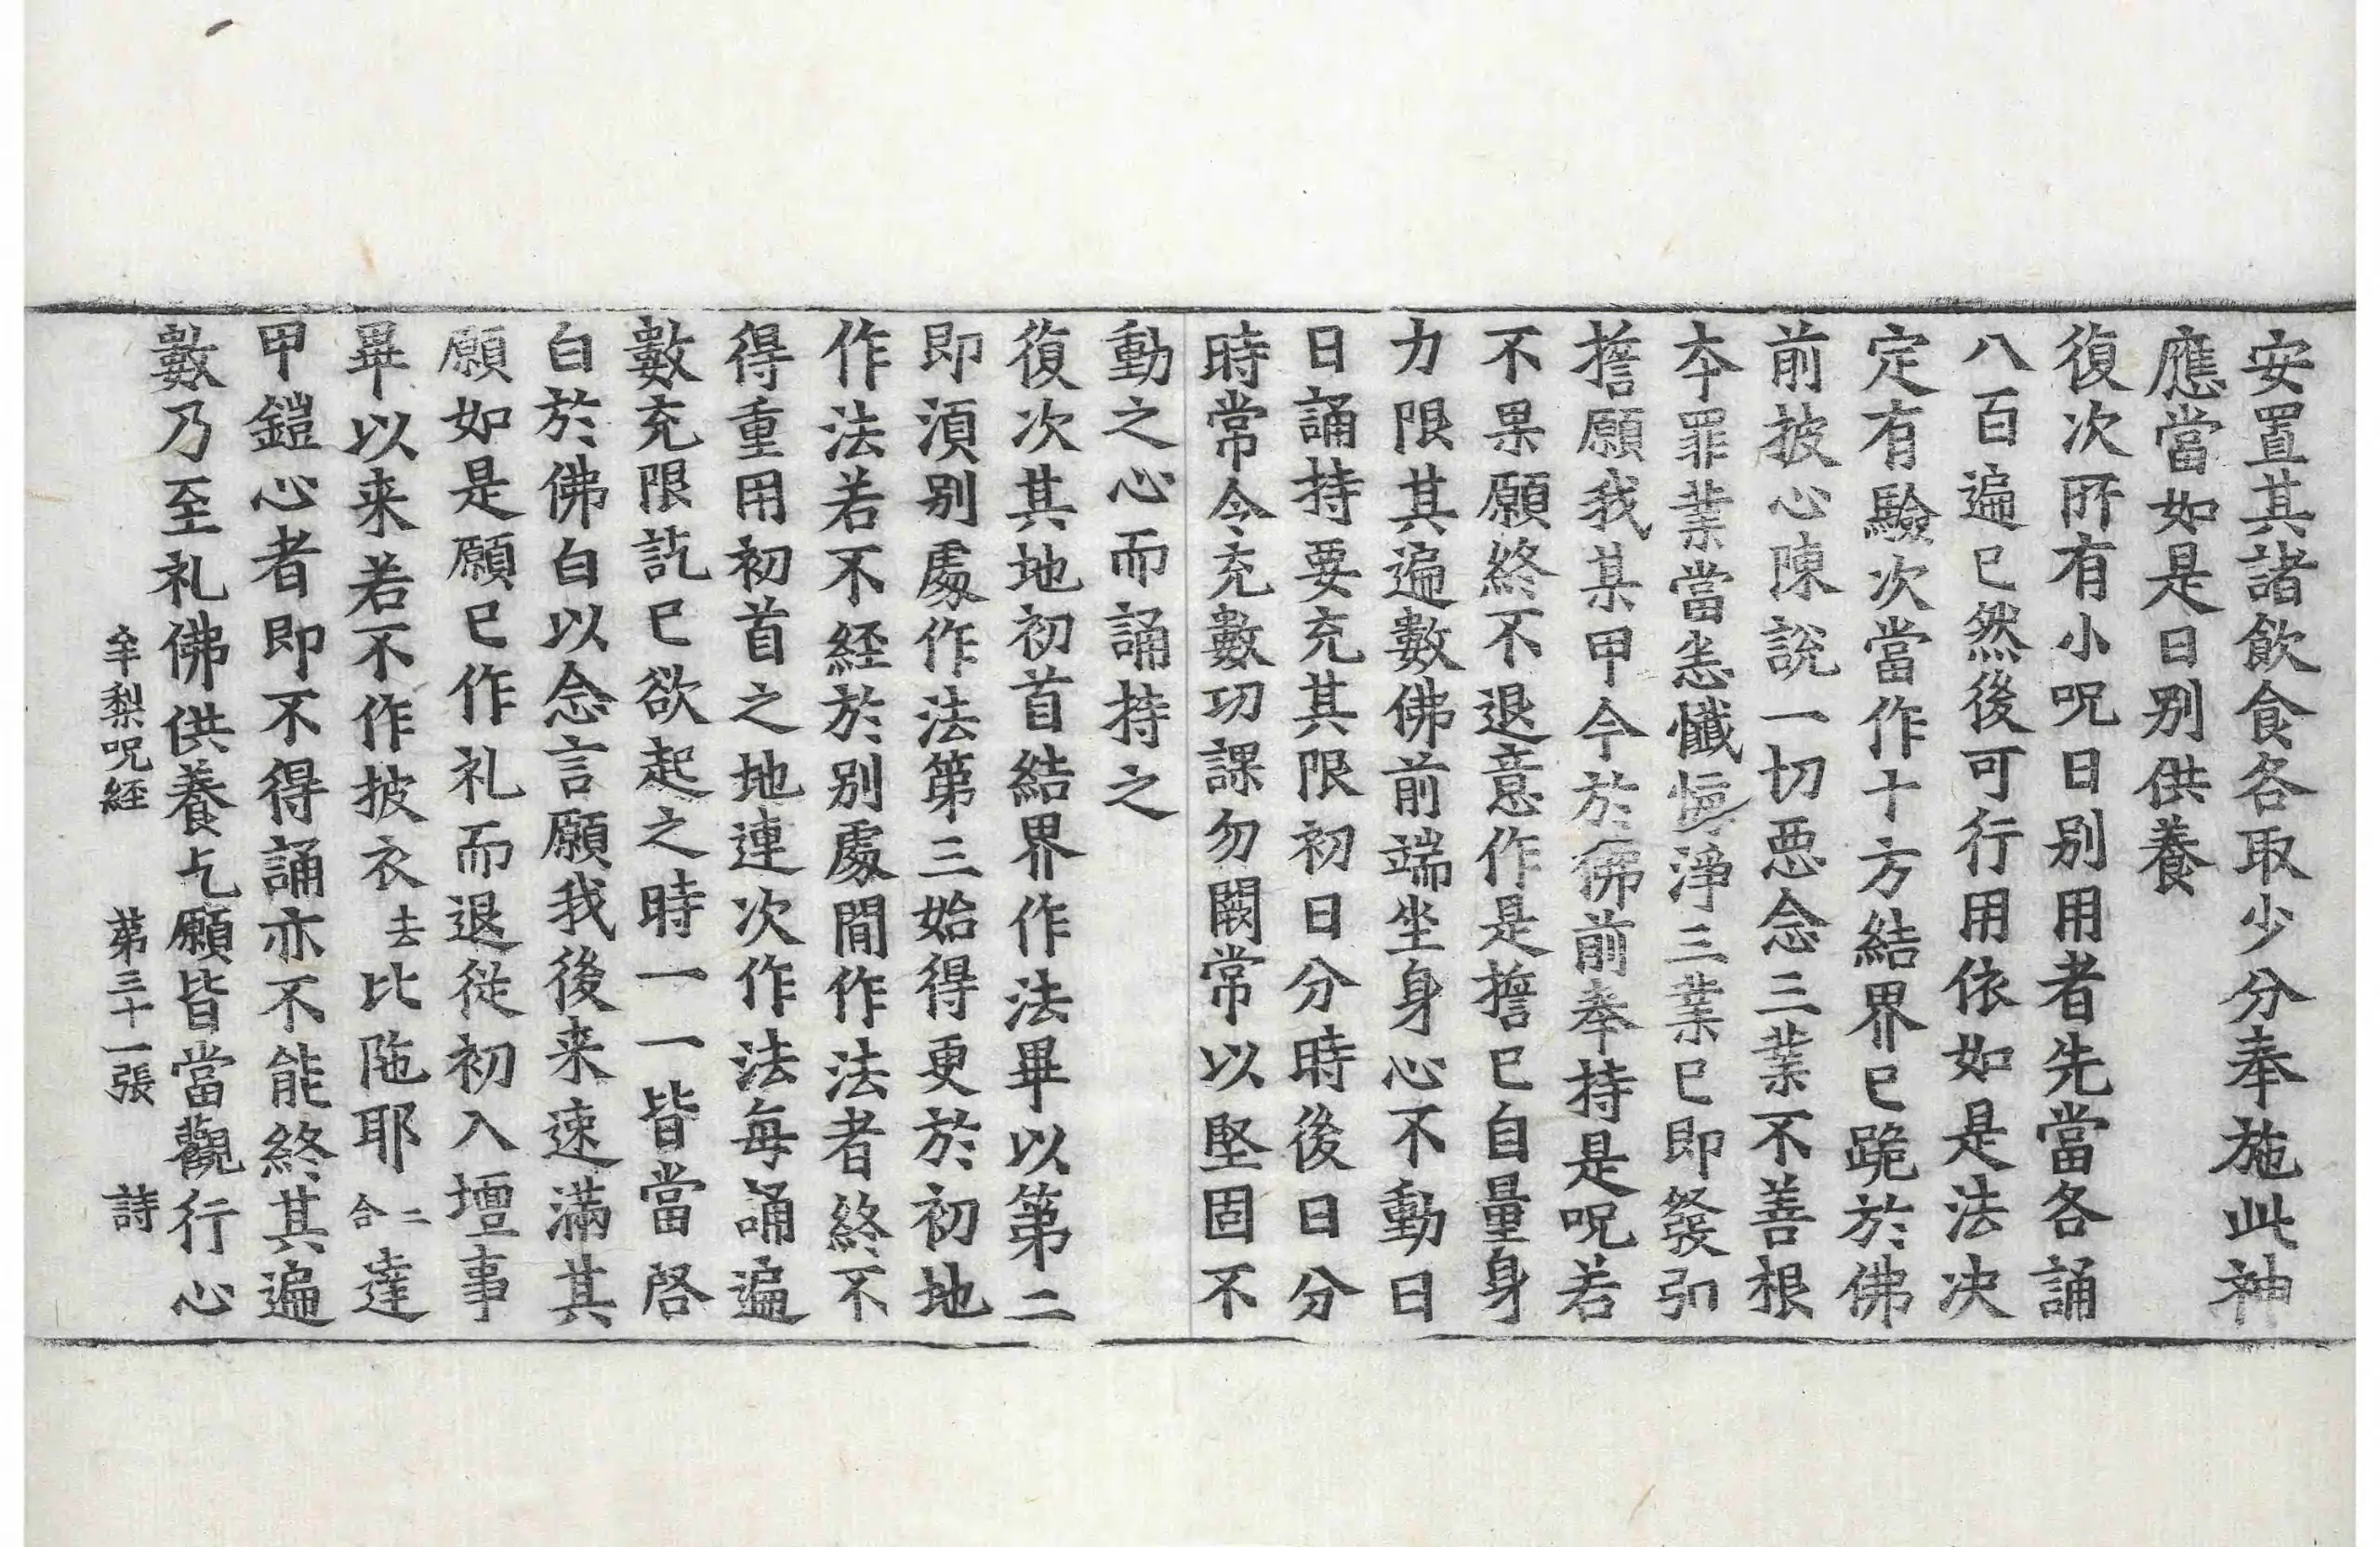 安置其諸飲食各取少分奉施此神
應當如是日別供養
復次所有小呪日別用者先當各誦
八百遍已然後可行用依如是法决
定有驗次當作十方結界已跪於佛
前披心陳說一切惡念三業不善根
本罪業當恙懴悔淨三業已即發弘
擔願我某甲今於佛前奉持是呪若
不果願終不退意作是擔已自量身
力限其遍數佛前端坐身心不動日
日誦持要充其限初日分時後日分
時常令充數功課勿闕常以堅固不
動之心而誦持之
復次其地初首結界作法畢以第二
即湏別處作法第三始得更於初地
作法若不經於別處間作法者終不
得重用初首之地連次作法每誦遍
數充限訖已欲起之時一一皆當啓
白於佛白以念言願我後来速滿其
願如是願已作礼而退從初入壇事
畢以来若不作披衣去比陁耶二合達
甲鎧心者即不得誦亦不能終其遍
數乃至礼佛供養乞願皆當觀行心
牟梨呪經 第三十一張 詩